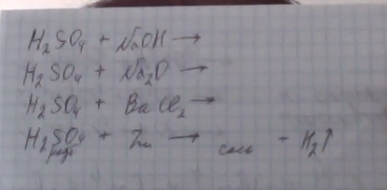 H₂SO₄ + NaOH →
H₂SO₄ + Na₂O →
H₂SO₄ + BaCl₂ →
H₂SO₄ + Zn → соль + H₂↑
разб